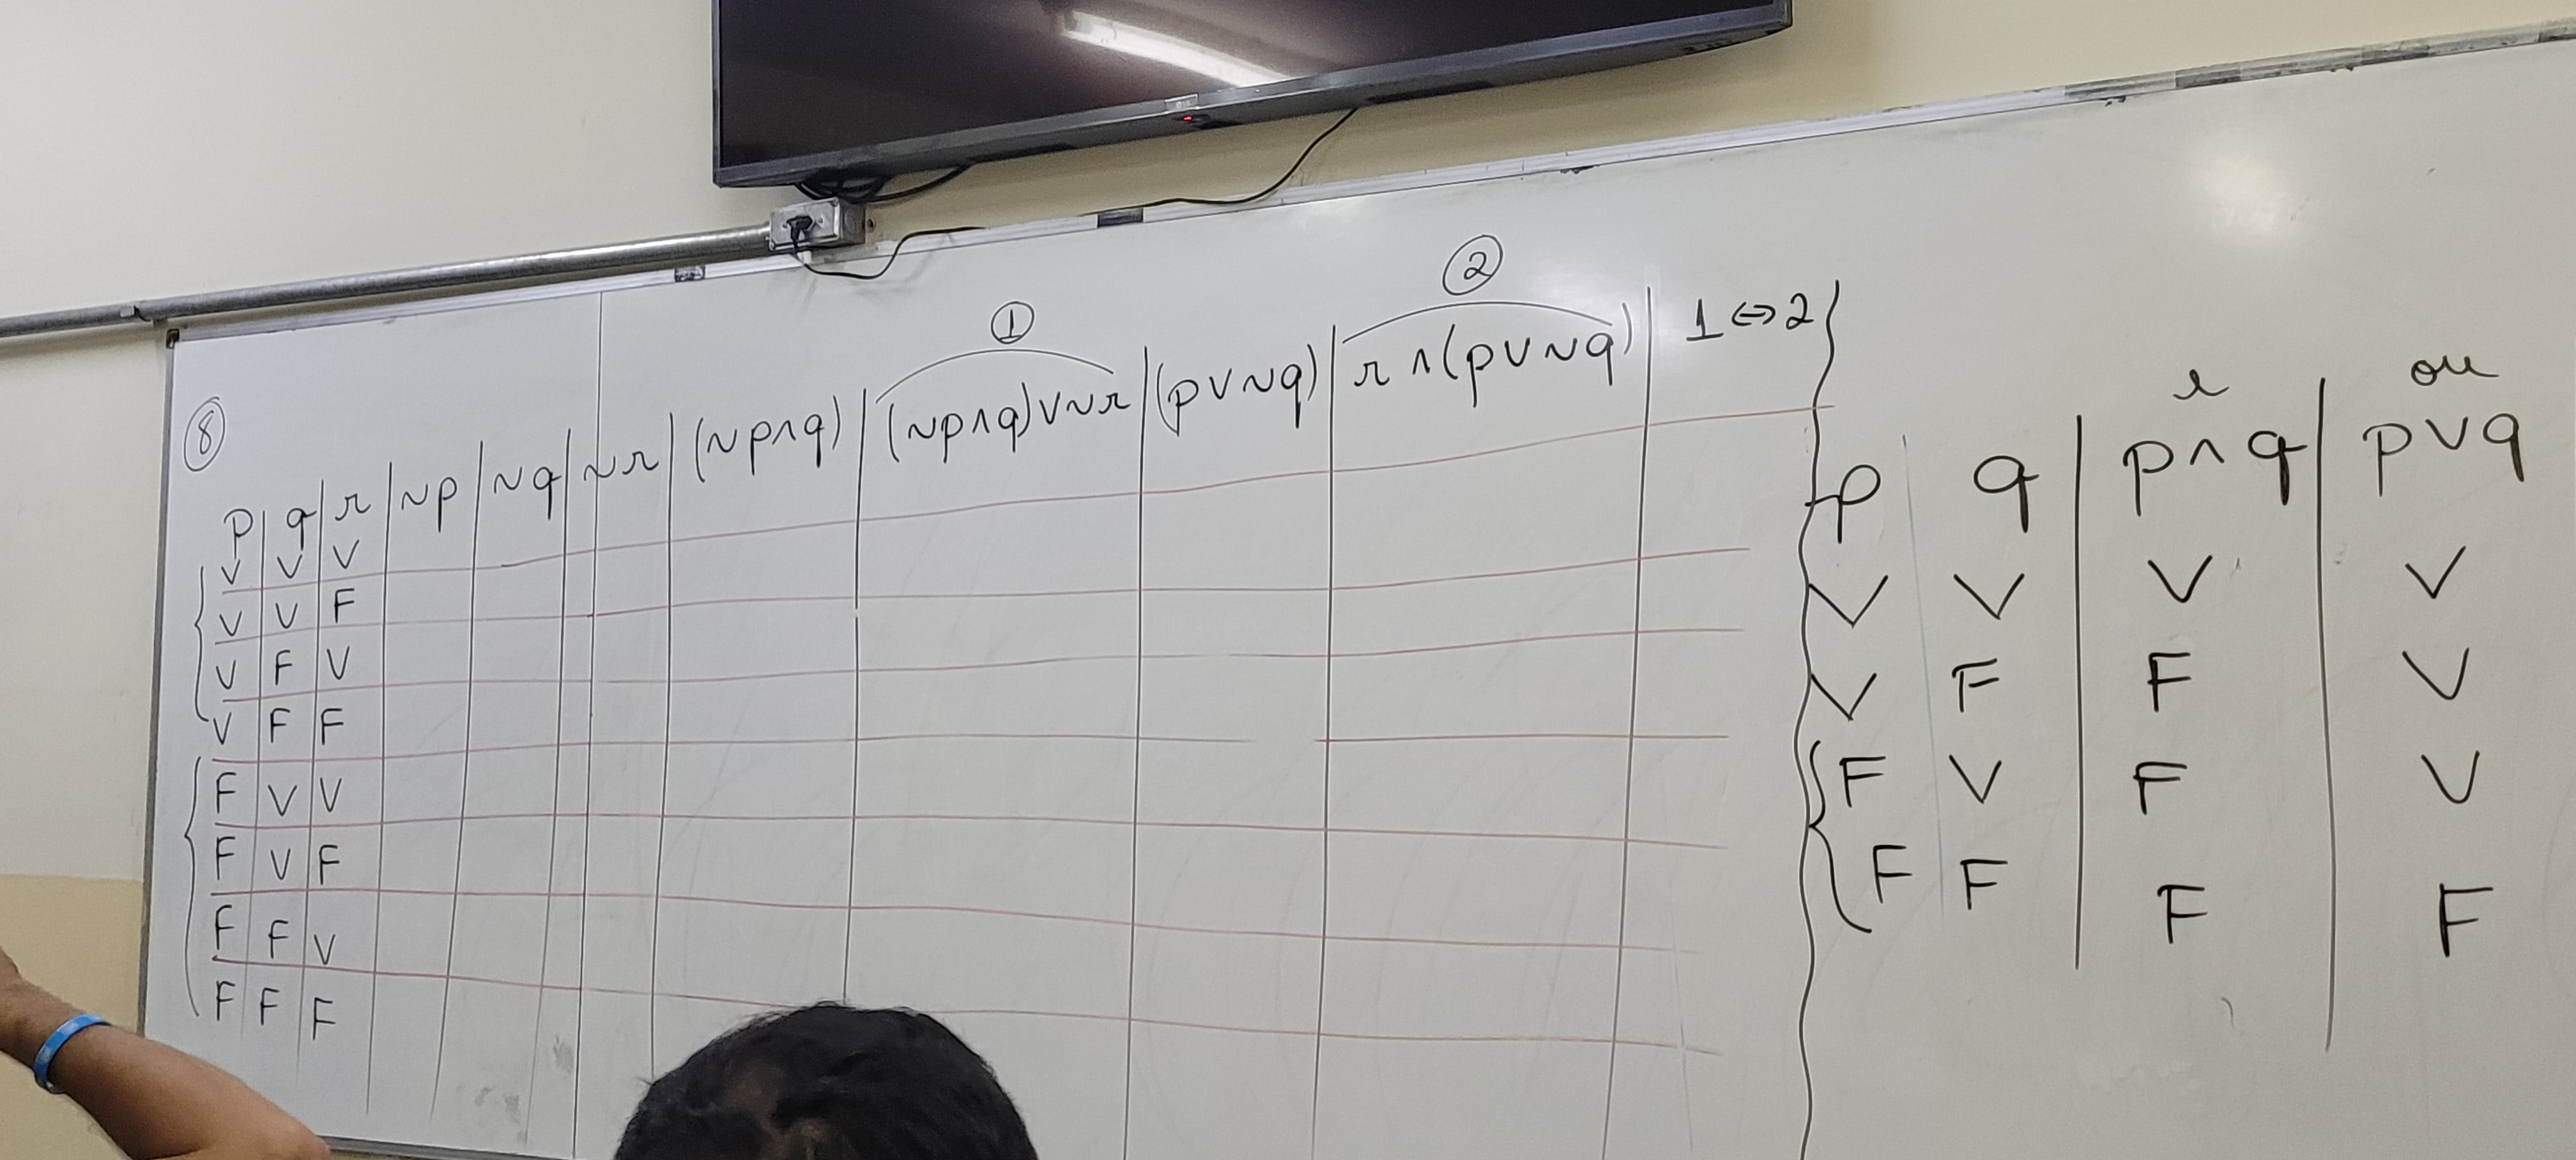 ① ②
⑧ p | q | r | ~p | ~q | ~r | (~p∧q) | (~p∧q)∨~r | (p∨~q) | r∧(p∨~q) | 1⇔2
V V V
V V F
V F V
V F F
F V V
F V F
F F V
F F F
e ou
p q | p∧q | p∨q
V V V V
V F F V
F V F V
F F F F